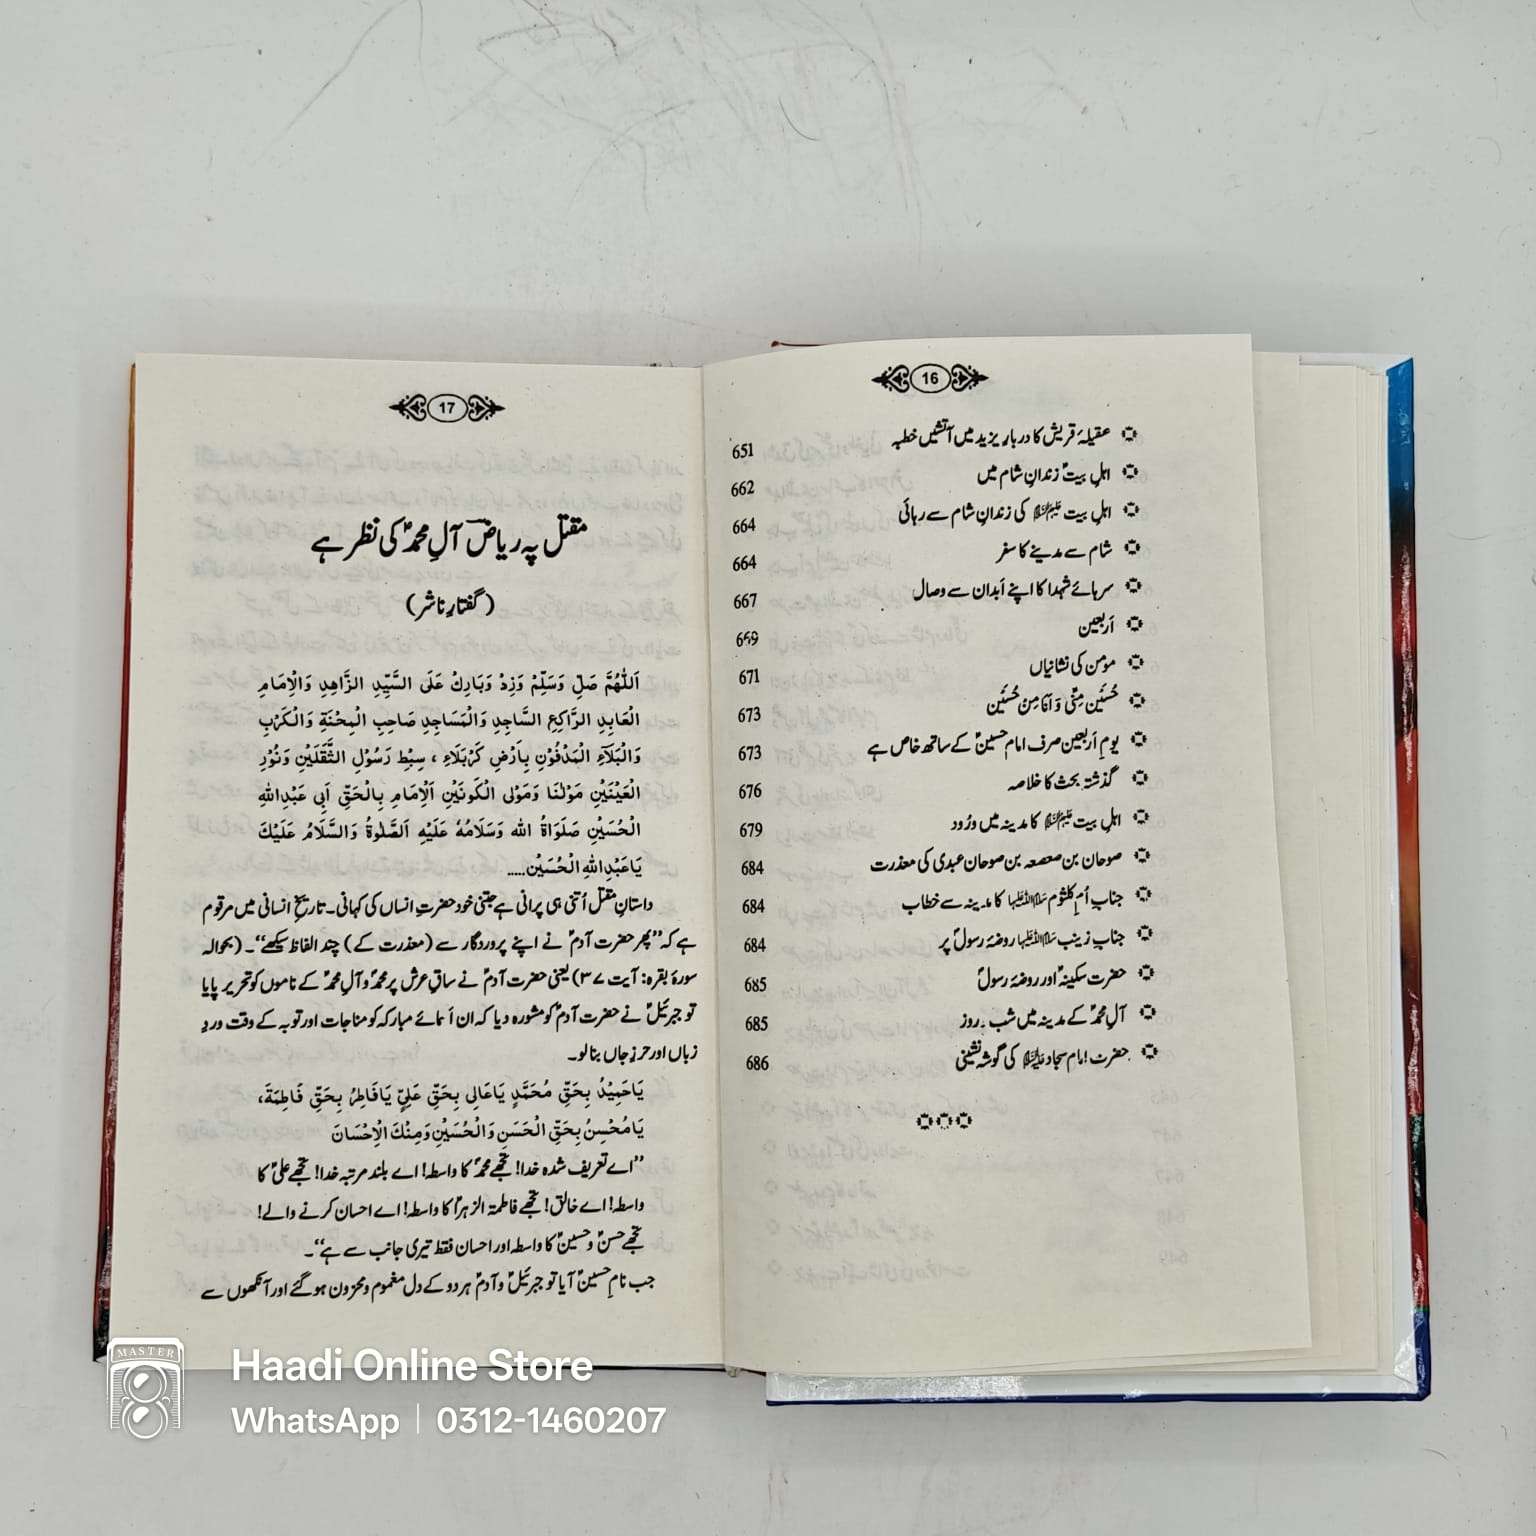 16
عقیلۂ قریش کا دربارِ یزید میں آتشیں خطبہ 651
اہلِ بیتؑ زندانِ شام میں 662
اہلِ بیت علیہم السلام کی زندانِ شام سے رہائی 664
شام سے مدینے کا سفر 664
سرہائے شہدا کا اپنے اَبدان سے وصال 667
اَربعین 669
مومن کی نشانیاں 671
حُسَین مِنِّی وَ اَنَا مِنْ حُسَین 673
یومِ اَربعین صرف امام حسینؑ کے ساتھ خاص ہے 673
گذشتہ بحث کا خلاصہ 676
اہلِ بیت علیہم السلام کا مدینہ میں ورُود 679
صوحان بن صعصعہ بن صوحان عبدی کی معذرت 684
جنابِ اُمِ کلثوم سلام اللہ علیہا کا مدینہ سے خطاب 684
جنابِ زینب سلام اللہ علیہا روضۂ رسولؐ پر 684
حضرت سکینہؑ اور روضۂ رسولؐ 685
آلِ محمدؐ کے مدینہ میں شب و روز 685
حضرت امام سجاد علیہ السلام کی گوشہ نشینی 686
17
مقتل پہ ریاضؔ آلِ محمدؐ کی نظر ہے
(گفتارِ ناشر)
اَللّٰهُمَّ صَلِّ وَسَلِّمْ وَزِدْ وَبَارِكْ عَلَى السَّيِّدِ الزَّاهِدِ وَالْاِمَامِ
الْعَابِدِ الرَّاكِعِ السَّاجِدِ وَالْمَسَاجِدِ صَاحِبِ الْمِحْنَةِ وَالْكَرْبِ
وَالْبَلَآءِ الْمَدْفُوْنِ بِاَرْضِ كَرْبَلَاءِ ، سِبْطِ رَسُوْلِ الثَّقَلَيْنِ وَنُوْرِ
الْعَيْنَيْنِ مَوْلٰنَا وَمَوْلَى الْكَوْنَيْنِ اَلْاِمَامِ بِالْحَقِّ اَبِى عَبْدِاللهِ
الْحُسَيْنِ صَلَوَاةُ الله وَسَلَامُهٗ عَلَيْهِ اَلصَّلٰوةُ وَالسَّلَامُ عَلَيْكَ
يَاعَبْدِاللهِ الْحُسَيْن.....
داستانِ مقتل اُتنی ہی پرانی ہے جتنی خود حضرتِ انساں کی کہانی۔ تاریخِ انسانی میں مرقوم
ہے کہ ”پھر حضرت آدمؑ نے اپنے پروردگار سے (معذرت کے) چند الفاظ سیکھے“۔ (بحوالہ
سورۂ بقرہ: آیت ۳۷) یعنی حضرت آدمؑ نے ساقِ عرش پر محمدؐ و آلِ محمدؐ کے ناموں کو تحریر پایا
تو جبرئیلؑ نے حضرت آدمؑ کو مشورہ دیا کہ ان اَسمائے مبارکہ کو مناجات اور توبہ کے وقت وردِ
زباں اور حرزِ جاں بنا لو۔
يَاحَمِيْدُ بِحَقِّ مُحَمَّدٍ يَاعَالِى بِحَقِّ عَلِىٍّ يَافَاطِرُ بِحَقِّ فَاطِمَةَ،
يَامُحْسِنُ بِحَقِّ الْحَسَنِ وَالْحُسَيْنِ وَمِنْكَ الْاِحْسَانَ
”اے تعریف شدہ خدا! تجھے محمدؐ کا واسطہ! اے بلند مرتبہ خدا! تجھے علیؑ کا
واسطہ! اے خالق! تجھے فاطمۃ الزہراؑ کا واسطہ! اے احسان کرنے والے!
تجھے حسنؑ و حسینؑ کا واسطہ اور احسان فقط تیری جانب سے ہے“۔
جب نامِ حسینؑ آیا تو جبرئیلؑ و آدمؑ ہر دو کے دل مغموم و محزون ہو گئے اور آنکھوں سے
MASTER
Haadi Online Store
WhatsApp | 0312-1460207